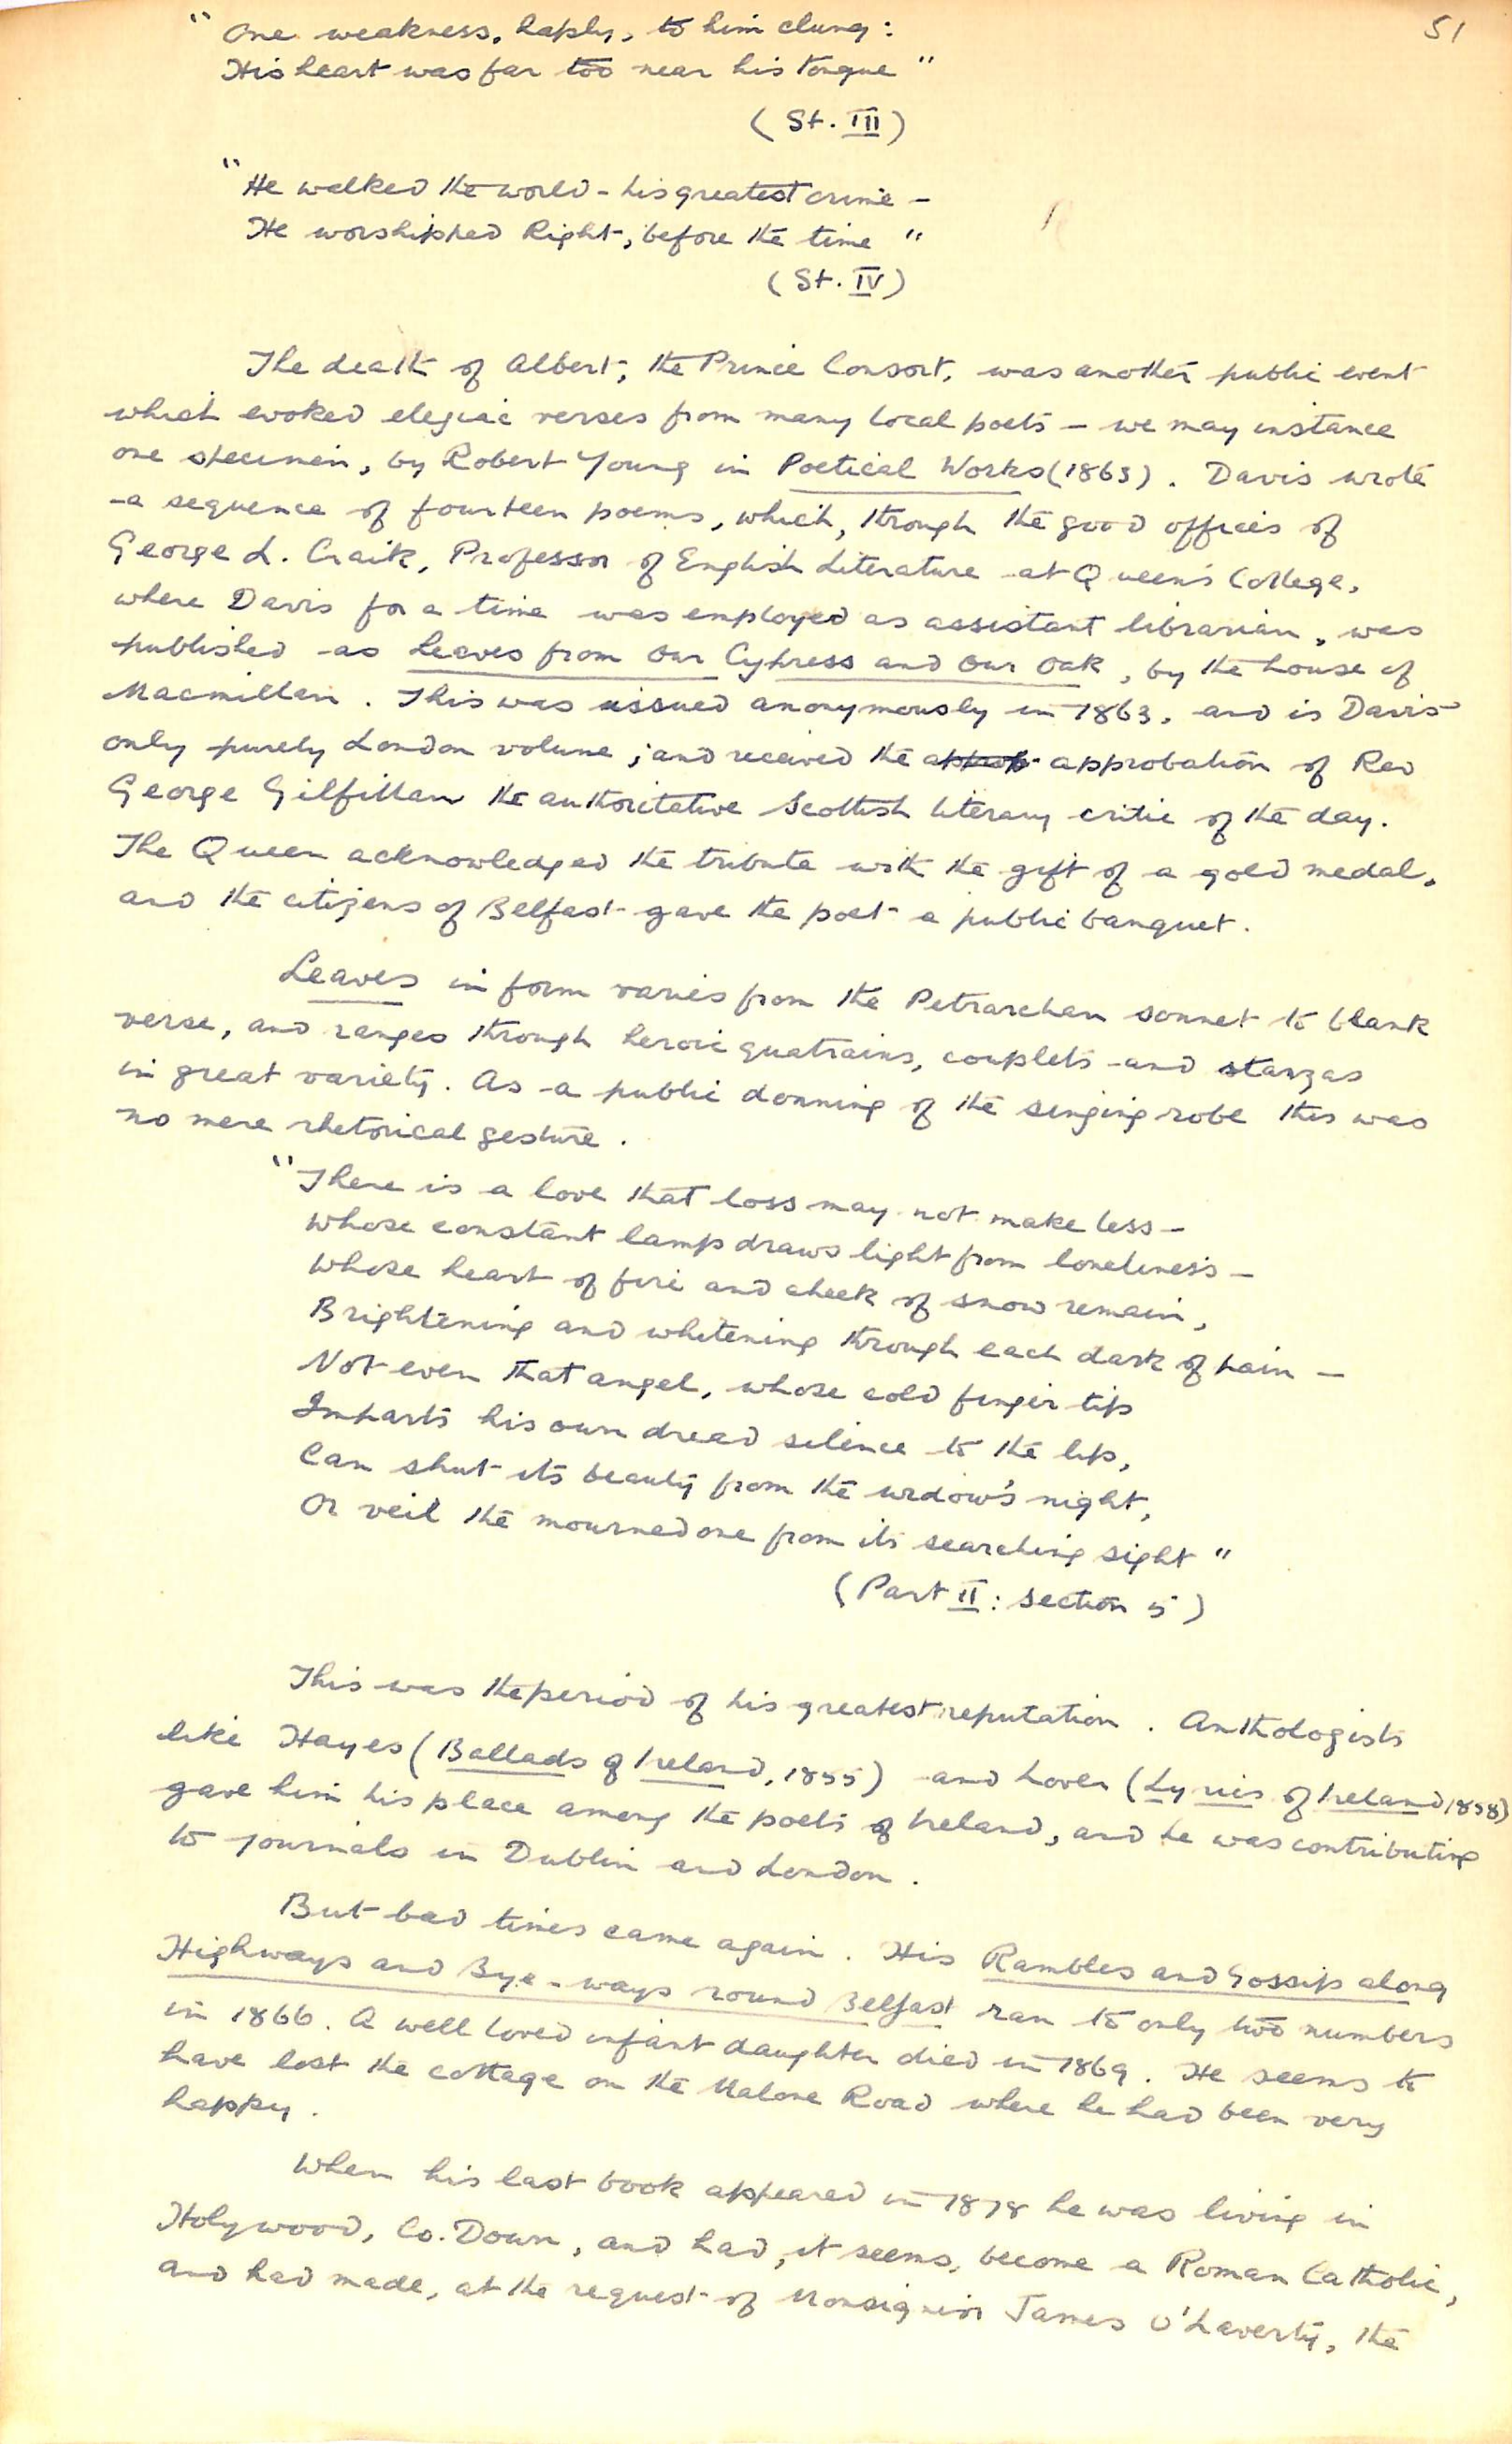 51
"One weakness, haply, to him clung:
His heart was far too near his tongue"
(St. III)
"He walked the world - his greatest crime -
He worshipped Right, before the time"
(St. IV)
The death of Albert, the Prince Consort, was another public event
which evoked elegiac verses from many local poets - we may instance
one specimen, by Robert Young in Poetical Works (1863). Davis wrote
a sequence of fourteen poems, which, through the good offices of
George L. Craik, Professor of English Literature at Queen's College,
where Davis for a time was employed as assistant librarian, was
published as Leaves from Our Cypress and Our Oak, by the house of
Macmillan. This was issued anonymously in 1863, and is Davis'
only purely London volume; and received the approbation of Rev
George Gilfillan the authoritative Scottish literary critic of the day.
The Queen acknowledged the tribute with the gift of a gold medal,
and the citizens of Belfast gave the poet a public banquet.
Leaves in form varies from the Petrarchan sonnet to blank
verse, and ranges through heroic quatrains, couplets and stanzas
in great variety. As a public donning of the singing robe this was
no mere rhetorical gesture.
"There is a love that loss may not make less -
Whose constant lamp draws light from loneliness -
Whose heart of fire and cheek of snow remain,
Brightening and whitening through each dark of pain -
Not even that angel, whose cold finger tip
Imparts his own dread silence to the lip,
Can shut its beauty from the widow's night,
Or veil the mourned one from its searching sight"
(Part II: section 5)
This was the period of his greatest reputation. Anthologists
like Hayes (Ballads of Ireland, 1855) and Lover (Lyrics of Ireland 1858)
gave him his place among the poets of Ireland, and he was contributing
to journals in Dublin and London.
But bad times came again. His Rambles and Gossip along
Highways and Bye-ways round Belfast ran to only two numbers
in 1866. A well loved infant daughter died in 1869. He seems to
have lost the cottage on the Malone Road where he had been very
happy.
When his last book appeared in 1878 he was living in
Holywood, Co. Down, and had, it seems, become a Roman Catholic,
and had made, at the request of Monsignor James O'Laverty, the